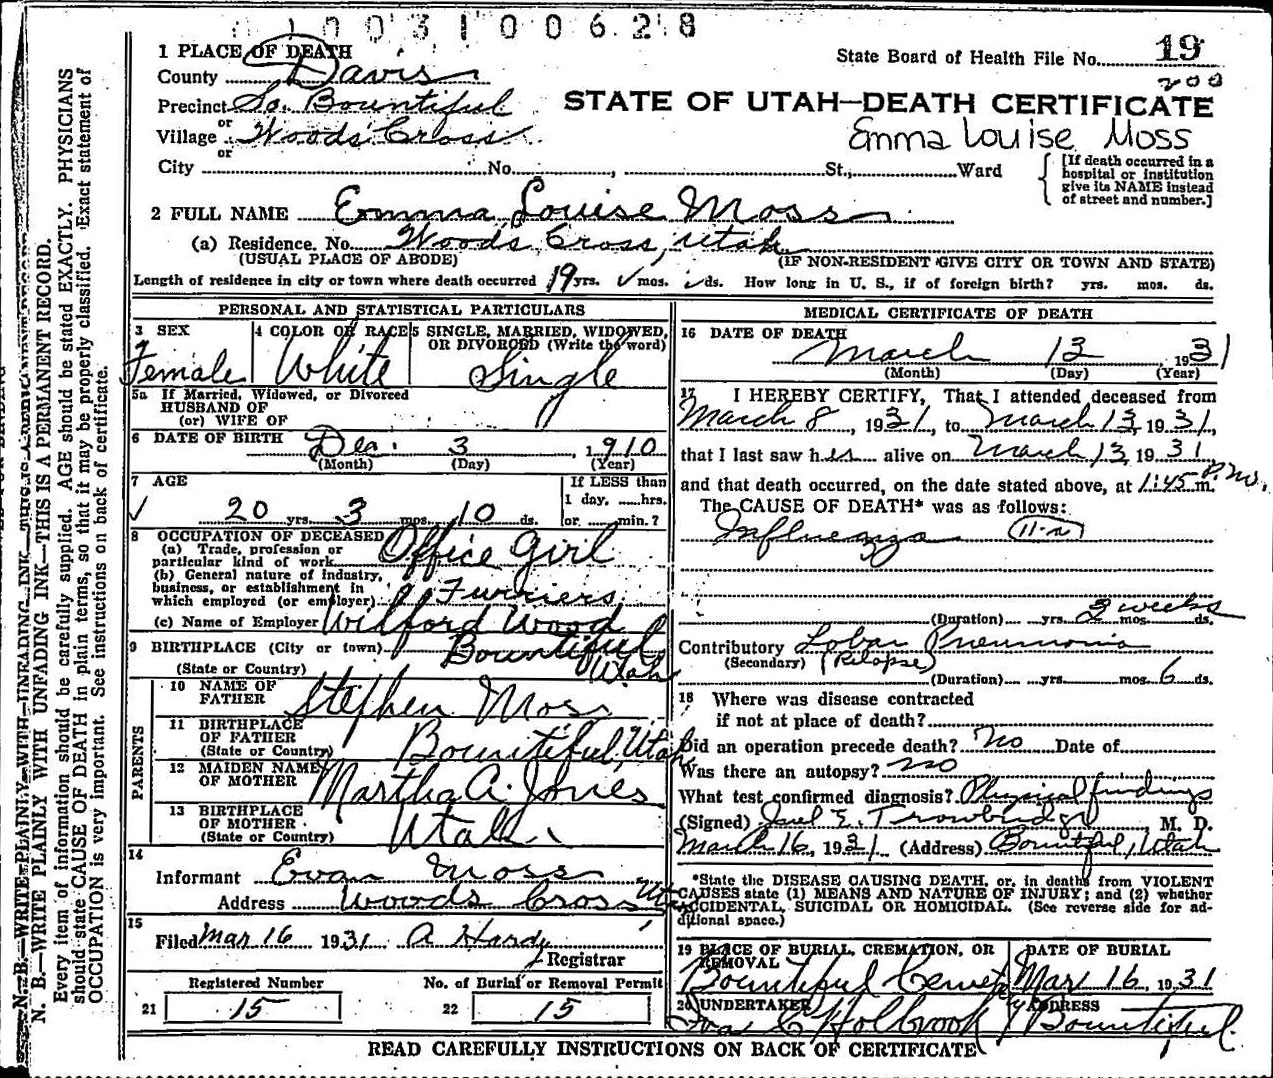 1003100628
1 PLACE OF DEATH
State Board of Health File No. 19
County Davis
200
Precinct So. Bountiful
STATE OF UTAH—DEATH CERTIFICATE
or
Village Woods Cross
Emma Louise Moss
or
City No. , St., Ward
[If death occurred in a hospital or institution give its NAME instead of street and number.]
2 FULL NAME Emma Louise Moss
(a) Residence. No. Woods Cross, Utah
(USUAL PLACE OF ABODE) (IF NON-RESIDENT GIVE CITY OR TOWN AND STATE)
Length of residence in city or town where death occurred 19 yrs. mos. ds. How long in U. S., if of foreign birth? yrs. mos. ds.
PERSONAL AND STATISTICAL PARTICULARS
3 SEX 4 COLOR OR RACE 5 SINGLE, MARRIED, WIDOWED,
OR DIVORCED (Write the word)
Female White Single
5a If Married, Widowed, or Divorced
HUSBAND OF
(or) WIFE OF
6 DATE OF BIRTH Dec. 3, 1910
(Month) (Day) (Year)
7 AGE If LESS than
1 day, ......hrs.
20 yrs. 3 mos. 10 ds. or ......min.?
8 OCCUPATION OF DECEASED
(a) Trade, profession or
particular kind of work Office Girl
(b) General nature of industry,
business, or establishment in
which employed (or employer) Furriers
(c) Name of Employer Wilford Wood
9 BIRTHPLACE (City or town) Bountiful
(State or Country) Utah
PARENTS
10 NAME OF
FATHER Stephen Moss
11 BIRTHPLACE
OF FATHER
(State or Country) Bountiful, Utah
12 MAIDEN NAME
OF MOTHER Martha A. Jones
13 BIRTHPLACE
OF MOTHER
(State or Country) Utah
14
Informant Evan Moss
Address Woods Cross Ut
15
Filed Mar 16 1931 A Hardy
Registrar
Registered Number No. of Burial or Removal Permit
21 15 22 15
MEDICAL CERTIFICATE OF DEATH
16 DATE OF DEATH
March 13, 1931
(Month) (Day) (Year)
17 I HEREBY CERTIFY, That I attended deceased from
March 8, 1931, to March 13, 1931,
that I last saw her alive on March 13, 1931
and that death occurred, on the date stated above, at 1:45 P.M. m.
The CAUSE OF DEATH* was as follows:
Influenza 11-a
(Duration) yrs. 3 weeks mos. ds.
Contributory Lobar Pneumonia
(Secondary) (Relapse)
(Duration) yrs. mos. 6 ds.
18 Where was disease contracted
if not at place of death?
Did an operation precede death? No Date of
Was there an autopsy? No
What test confirmed diagnosis? Physical findings
(Signed) E. Trowbridge, M. D.
March 16, 1931 (Address) Bountiful, Utah
*State the DISEASE CAUSING DEATH, or, in deaths from VIOLENT
CAUSES state (1) MEANS AND NATURE OF INJURY; and (2) whether
ACCIDENTAL, SUICIDAL OR HOMICIDAL. (See reverse side for ad-
ditional space.)
19 PLACE OF BURIAL, CREMATION, OR DATE OF BURIAL
REMOVAL
Bountiful Cemetery Mar 16, 1931
20 UNDERTAKER ADDRESS
C Holbrook Bountiful.
READ CAREFULLY INSTRUCTIONS ON BACK OF CERTIFICATE
N. B.—WRITE PLAINLY WITH UNFADING INK—THIS IS A PERMANENT RECORD.
Every item of information should be carefully supplied. AGE should be stated EXACTLY. PHYSICIANS
should state CAUSE OF DEATH in plain terms, so that it may be properly classified. Exact statement of
OCCUPATION is very important. See instructions on back of certificate.